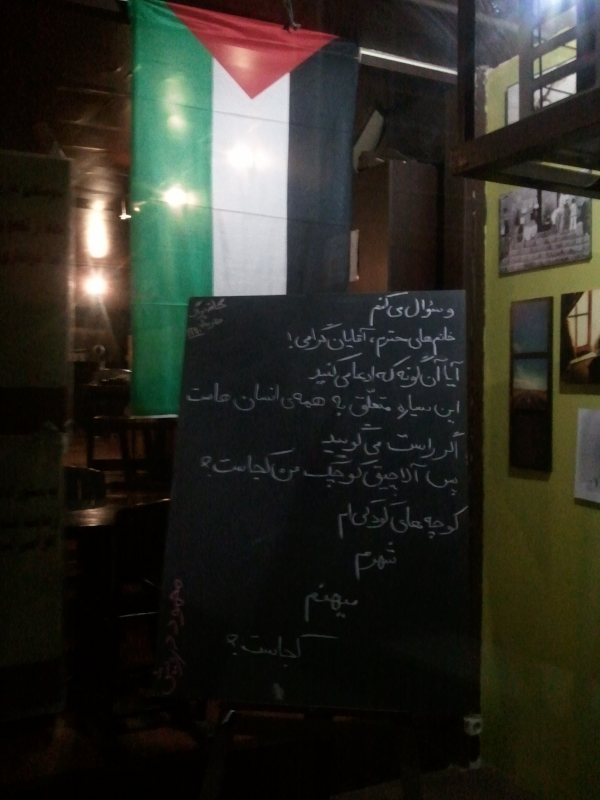 و سؤال می‌کنم
خانم‌های محترم، آقایان گرامی!
آیا آن گونه که ادعا می‌کنید
این سیاره متعلّق به همه‌ی انسان هاست
اگر راست می‌گویید
پس آلاچیق کوچک من کجاست؟
کوچه های کودکی‌ام
شهرم
میهنم
کجاست؟
محمود درویش